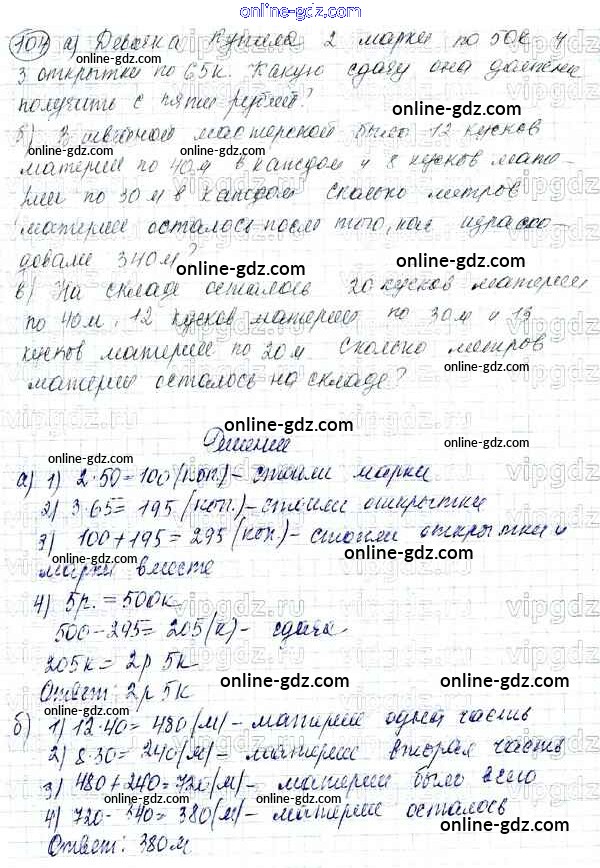 online-gdz.com
107 а) Девочка купила 2 марки по 50к и
3 открытки по 65к. Какую сдачу она должна
получить с пяти рублей?
online-gdz.com
б) В швейной мастерской было 12 кусков
материи по 40м в каждом и 8 кусков мате-
online-gdz.com
рии по 30м в каждом Сколько метров
материи осталось после того, как израсхо-
довали 340м?
online-gdz.com
в) На складе осталось 20 кусков материи
по 40м, 12 кусков материи по 30м и 15
online-gdz.com
кусков материи по 20м Сколько метров
материи осталось на складе?
online-gdz.com
Решение
online-gdz.com
а) 1) 2·50=100 (коп.) - стоили марки
online-gdz.com
2) 3·65= 195 (коп.) - стоили открытки
3) 100+195= 295 (коп.) - стоили открытки и
online-gdz.com
марки вместе
4) 5р. = 500к
online-gdz.com
500-295= 205 (к) - сдача
205к= 2р 5к
Ответ: 2р 5к
online-gdz.com
б) 1) 12·40= 480 (м) - материи одна часть
online-gdz.com
2) 8·30= 240 (м) - материи вторая часть
3) 480+240=720 (м) - материи было всего
online-gdz.com
4) 720- 340= 380 (м) - материи осталось
Ответ: 380м
online-gdz.com